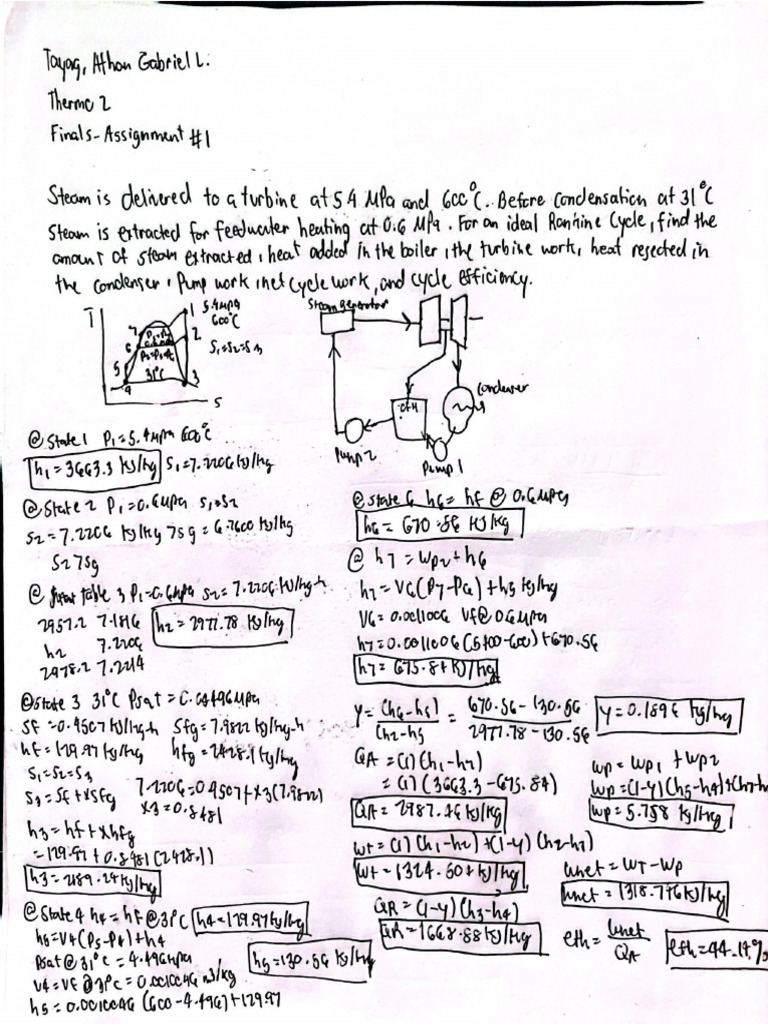 Tayag, Athan Gabriel L.
Thermo 2
Finals - Assignment #1
Steam is delivered to a turbine at 5.4 MPa and 600°C. Before condensation at 31°C
steam is extracted for feedwater heating at 0.6 MPa. For an ideal Rankine Cycle, find the
amount of steam extracted, heat added in the boiler, the turbine work, heat rejected in
the condenser, Pump work, net cycle work, and cycle efficiency.
T
1 5.4MPa
600°C
2
S1=S2=S3
7
6
5
4
31°C
3
S
Steam generator
Condenser
OFH
Pump 2
Pump 1
@ State 1 P1=5.4MPa 600°C
h1 = 3663.3 KJ/kg S1=7.2206 KJ/kg
@ State 2 P1=0.6MPa S1=S2
S2=7.2206 KJ/kg 7sg = 6.7600 KJ/kg
S2 7sg
3 P1=0.6MPa S2= 7.2206
2957.2 7.1816
h2 7.2206
2978.2 7.2214
h2=2977.78 KJ/kg
@State 3 31°C Psat = 0.004496MPa
Sf =0.4507 KJ/kg-k Sfg= 7.9822 KJ/kg-k
hf=129.97 KJ/kg hfg= 2428.1 KJ/kg
S1=S2=S3
S3=Sf+xSfg 7.2206=0.4507+x3(7.9822)
x3=0.8481
h3=hf+xhfg
=129.97+0.8481(2428.1)
h3=2189.24 KJ/kg
@State 4 h4=hf@31°C h4=129.97 KJ/kg
h5=V4(P5-P4)+h4
Psat@31°C=4.496kPa
V4=Vf@31°C=0.0010046 m3/kg
h5=0.0010046(600-4.496)+129.97
h5=130.56 KJ/kg
@ State 6 h6= hf @ 0.6MPa
h6= 670.56 KJ/kg
@ h7 = Wp2+h6
h7=V6(P7-P6)+h5 KJ/kg
V6=0.0011006 Vf@0.6MPa
h7=0.0011006(5400-600)+670.56
h7=675.84 KJ/kg
Y= (h6-h5)/(h2-h5) = 670.56-130.56/2977.78-130.56 Y=0.1896 KJ/kg
QA =(1)(h1-h7)
=(1)(3663.3-675.84)
QA=2987.46 KJ/kg
Wt=(1)(h1-h2)+(1-Y)(h2-h3)
Wt=1324.504 KJ/kg
QR=(1-Y)(h3-h4)
QR=1668.88 KJ/kg
Wp= Wp1 + Wp2
Wp=(1-Y)(h5-h4)+(h7-h6)
Wp=5.758 KJ/kg
Wnet = WT-Wp
Wnet = 1318.746 KJ/kg
eth= Wnet/QA eth=44.14%